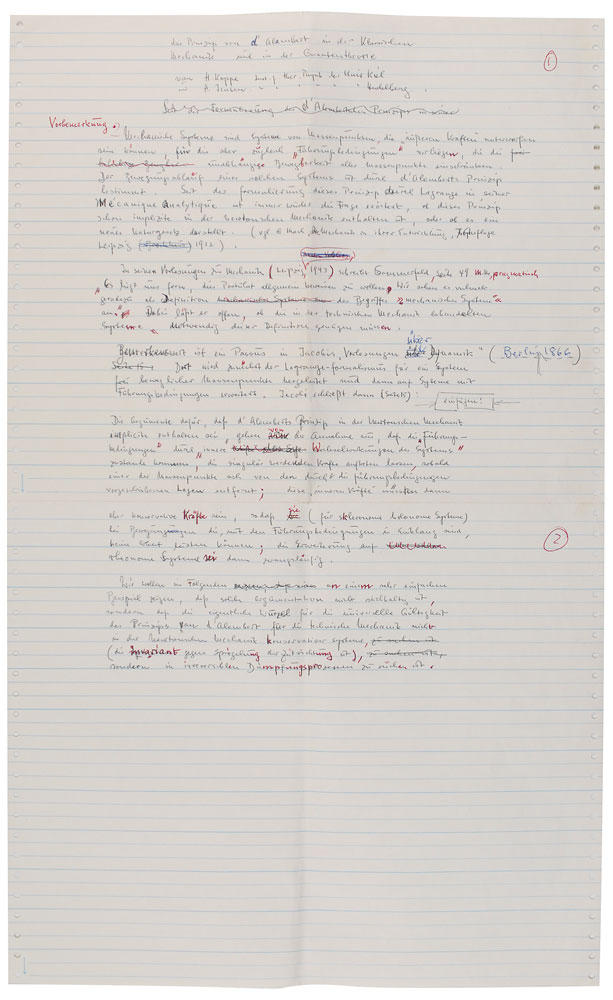 das Prinzip von d'Alembert in der Klassischen
Mechanik und in der Quantentheorie
①
von H. Koppe Inst. f. theor. Physik der Univ. Kiel
und H. Jensen " " " " Heidelberg.
Vorbemerkung:
Mechanische Systeme sind Systeme von Massenpunkten, die "äußeren Kräften" unterworfen
sein können, für die aber zugleich "Führungsbedingungen" vorliegen, die die
unabhängige Beweglichkeit aller Massenpunkte einschränken.
Der Bewegungsablauf eines solchen Systems ist durch d'Alemberts Prinzip
bestimmt. Seit der Formulierung dieses Prinzips durch Lagrange in seiner
Mécanique Analytique ist immer wieder die Frage erörtert, ob dieses Prinzip
schon implizite in der Newtonschen Mechanik enthalten ist, oder ob es ein
neues Naturgesetz darstellt. (vgl. E. Mach, die Mechanik in ihrer Entwicklung, 7. Auflage
Leipzig 1912).
In seinen Vorlesungen zu Mechanik (Leipzig 1943) schreibt Sommerfeld, Seite 49 pragmatisch
"Es liegt uns fern, dies Postulat allgemein beweisen zu wollen. Wir sehen es vielmehr
geradezu als Definition des Begriffes "mechanisches System"
an." Dabei läßt er offen, ob die in der technischen Mechanik behandelten
Systeme notwendig dieser Definition genügen müssen.
Bemerkenswert ist ein Passus in Jacobis "Vorlesungen über Dynamik" (Berlin 1866)
Dort wird zunächst der Lagrange-Formalismus für ein System
frei beweglicher Massenpunkte hergeleitet und dann auf Systeme mit
Führungsbedingungen erweitert. Jacobi schließt dann (Seite 51): einfügen!
Die Argumente dafür, daß d'Alemberts Prinzip in der Newtonschen Mechanik
implizite enthalten sei, gehen von der Annahme aus, daß die "Führungs-
bedingungen" durch "innere Wechselwirkungen des Systems"
zustande kommen, die singulär werdende Kräfte auftreten lassen, sobald
einer der Massenpunkte sich von den durch die Führungsbedingungen
vorgeschriebenen Lagen entfernt; diese inneren Kräfte müssten dann
②
aber konservative Kräfte sein, sodaß sie (für skleronome holonome Systeme)
bei Bewegungen die mit den Führungsbedingungen in Einklang sind,
keine Arbeit leisten können; die Erweiterung auf
rheonome Systeme sei dann zwangsläufig.
Wir wollen im Folgenden an einem sehr einfachen
Beispiel zeigen, daß solche Argumentation nicht stichhaltig ist,
sondern daß die eigentliche Wurzel für die universelle Gültigkeit
des Prinzips von d'Alembert für die technische Mechanik nicht
in der Newtonschen Mechanik konservativer Systeme,
(die invariant gegen Spiegelung der Zeitrichtung ist),
sondern in irreversiblen Dämpfungsprozessen zu suchen ist.